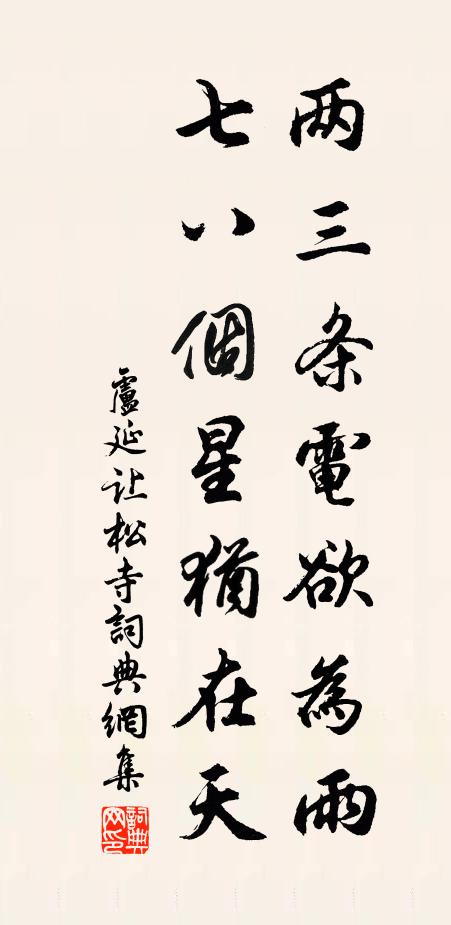 两三条電欲為雨
七八個星猶在天
盧延让松寺詞典網集
詞典网印